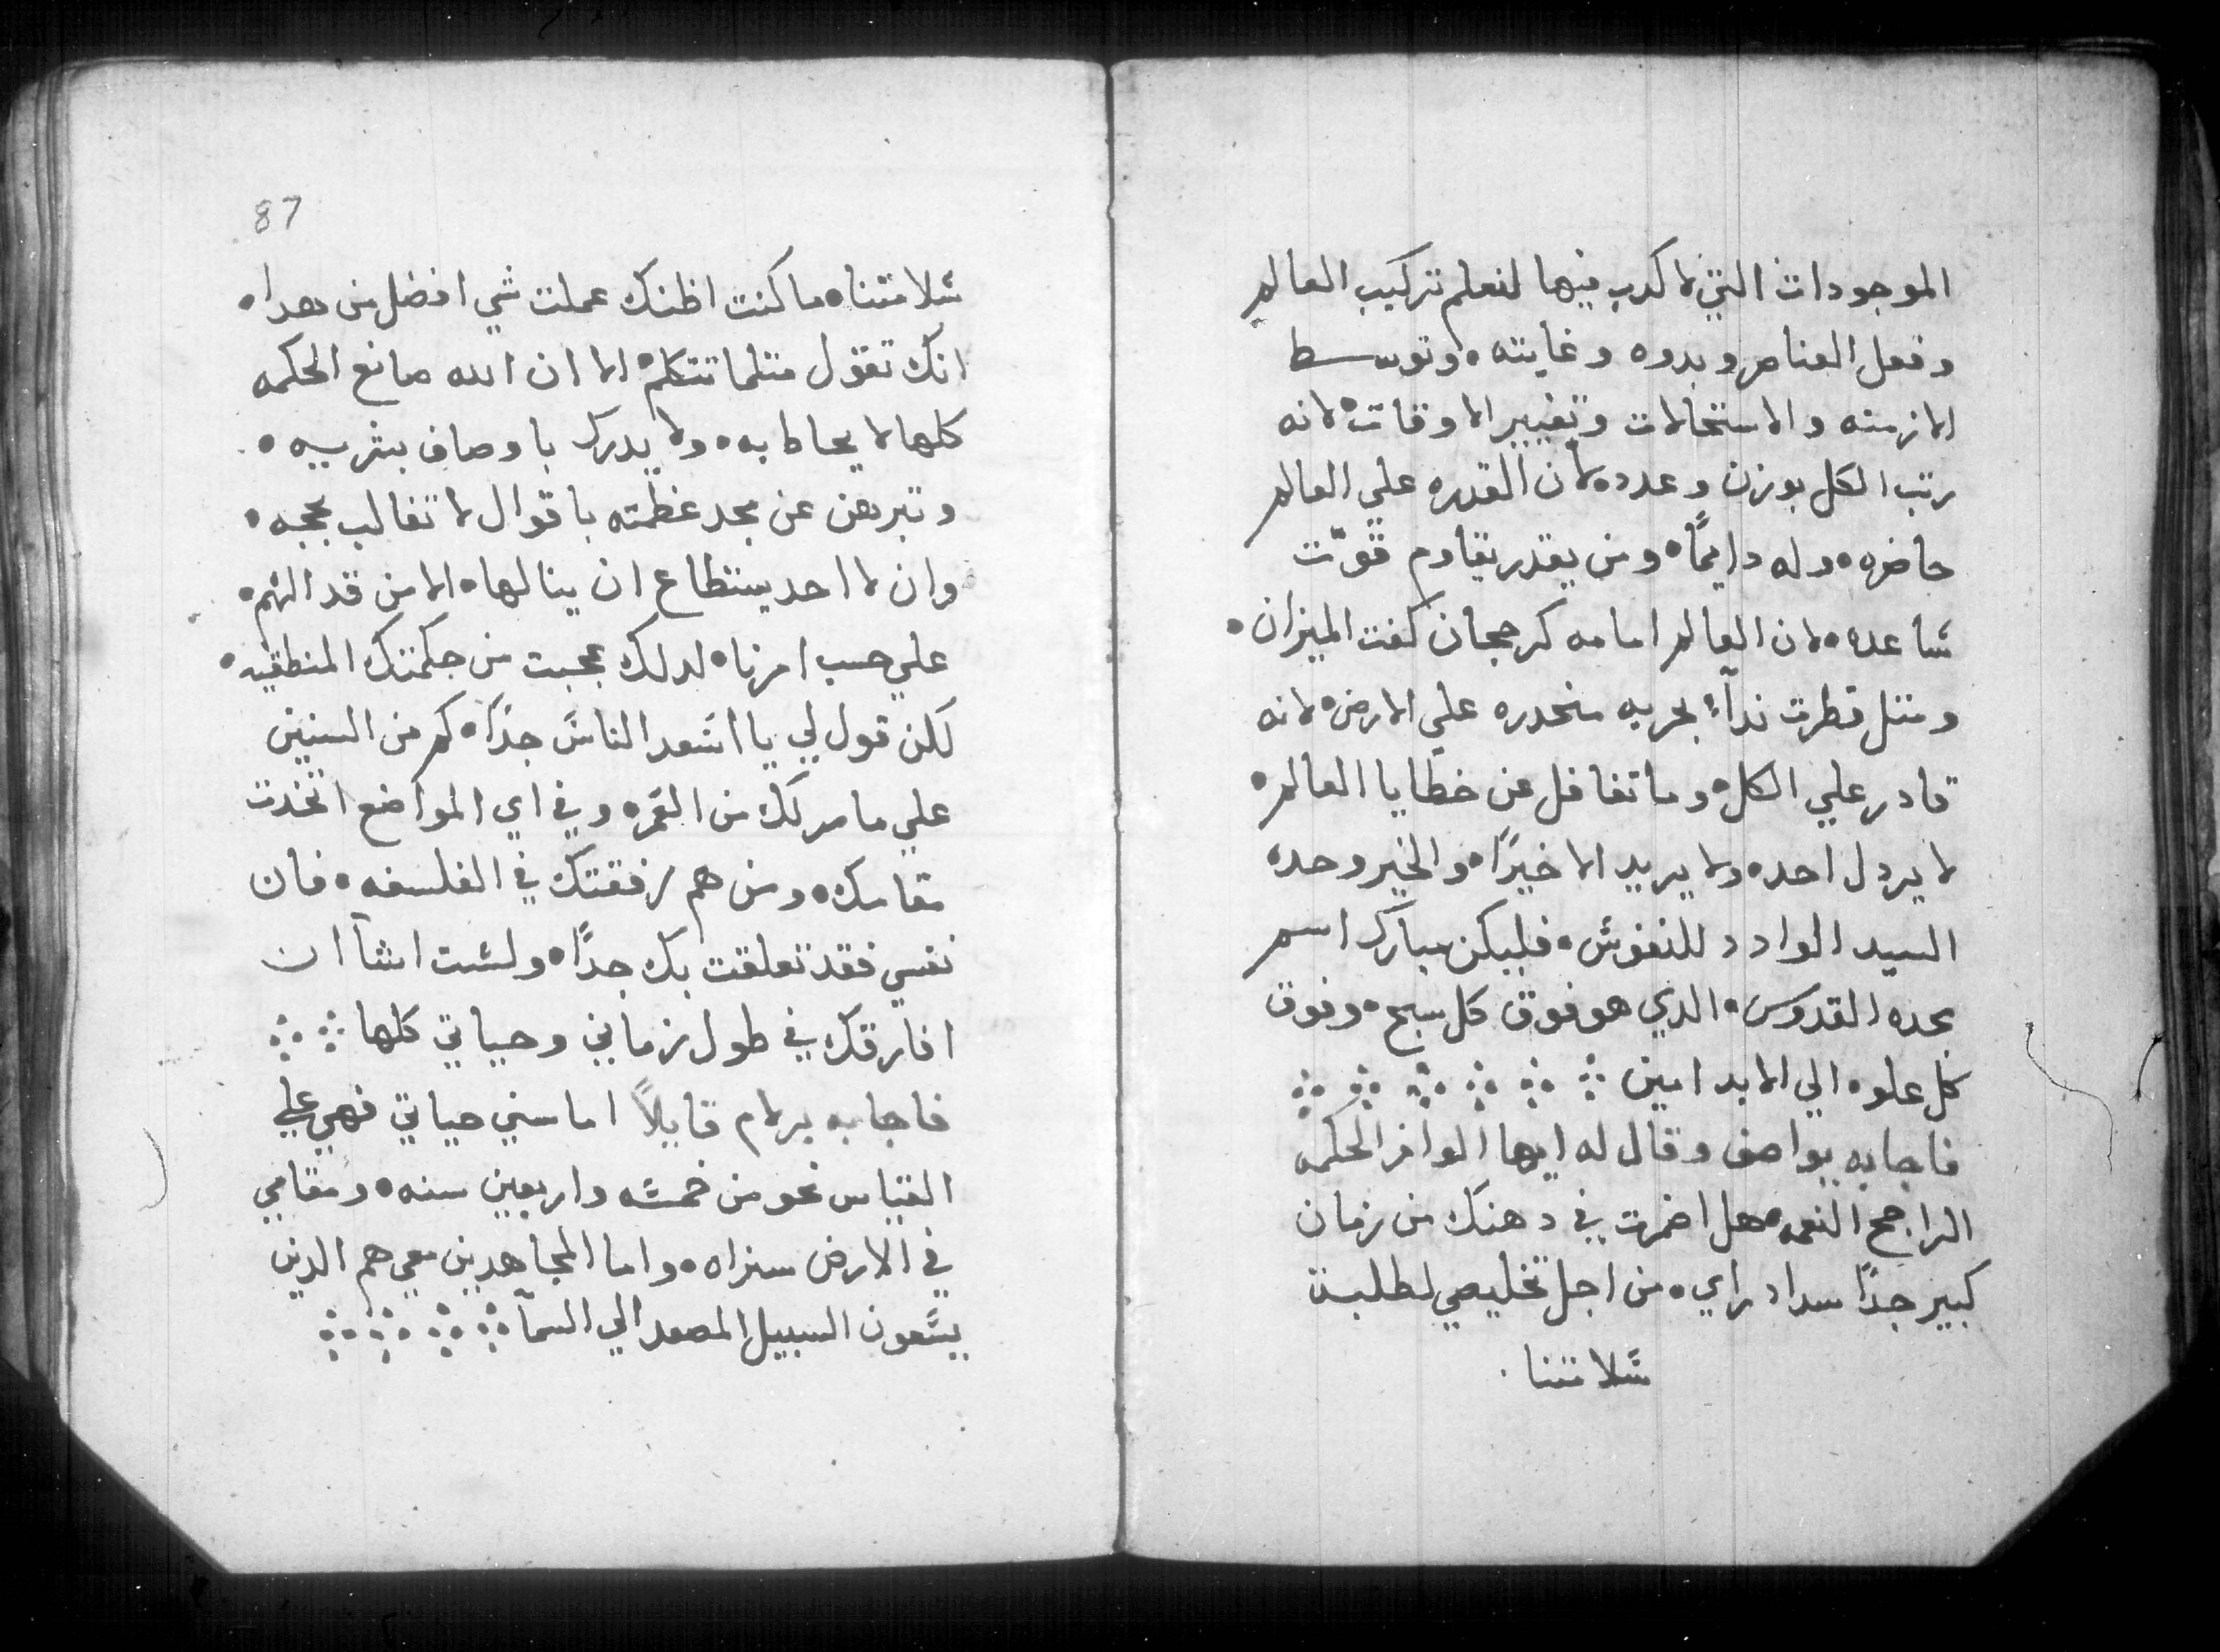 الموجودات التي لا كدب فيها لنعلم تركيب العالم
وفعل العناصر وبدوه وغايته، وتوسط
الازمنه والاستحالات وتغيير الاوقات، لانه
رتب الكل بوزن وعدد، لان القدره علي العالم
حاضره، وله دايمًا، ومن يقدر يقاوم قوّت
ساعده، لان العالم امامه كرجحان كفت الميزان،
ومتل قطرت نداء بحريه منحدره علي الارض، لانه
قادر علي الكل، وما تغافل عن خطايا العالم،
لا يردل احد، ولا يريد الا خيرًا، والخير وحده
السيد الوادد للنفوس، فليكن مبارك اسم
مجده القدوس، الدي هو فوق كل سبح، وفوق
كل علو، الي الابد امين
فاجابه يواصف وقال له ايها الوافر الحكمه
الراجح النعمه، هل اضمرت في دهنك من زمان
كبير جدًا سداد راي، من اجل تخليصي لطلبت
سلامتنا
87
سلامتنا، ما كنت اظنك عملت شي افضل من هدا،
انك تقول متلما تتكلم، الا ان الله صانع الحكمه
كلها لا يحاط به، ولا يدرك باوصاف بشريه،
وتبرهن عن مجد عظمته باقوال لا تغالب بحجه،
وان لا احد يستطاع ان ينالها، الا من قد الهم،
علي حسب امرنا، لدلك عجبت من حكمتك المنطقيه،
لكن قول لي يا اسعد الناس جدًا، كم من السنين
علي ما مر لك من العمر، وفي اي المواضع اتخدت
مقامك، ومن هم رفقتك في الفلسفه، فان
نفسي فقد تعلقت بك جدًا، ولست اشآ ان
افارقك في طول زماني وحياتي كلها
فاجابه برلام قايلاً اما سني حياتي فهي علي
القياس نحو من خمسه واربعين سنه، ومقامي
في الارض سنراه، واما المجاهدين معي هم الدين
يسعون السبيل المصعد الي السمآ